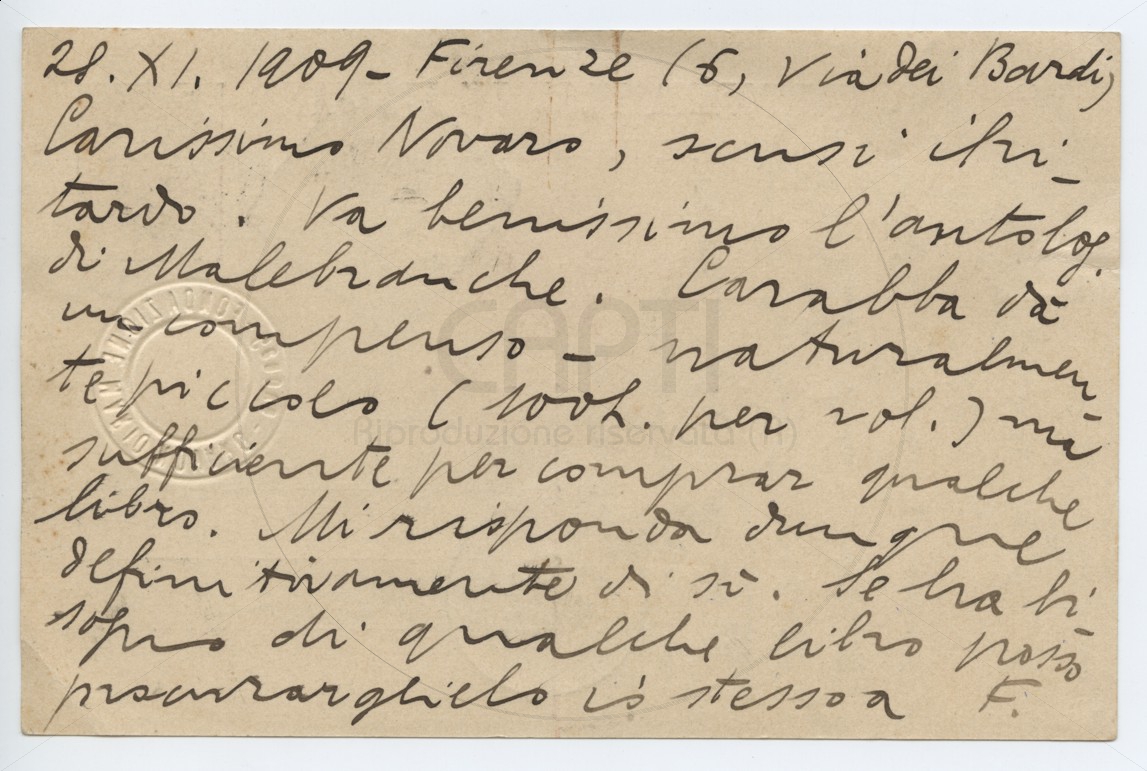 28. XI. 1909 - Firenze (6, Via dei Bardi)
Carissimo Novaro, scusi il ri-
tardo. Va benissimo l'antolog.
di Malebranche. Carabba dà
un compenso - naturalmen-
te piccolo (100 L. per vol.) ma
sufficiente per comprar qualche
libro. Mi risponda dunque
definitivamente di sì. Se ha bi-
sogno di qualche libro posso
procurarglielo io stesso a F.
CAPTI
Riproduzione riservata (n)